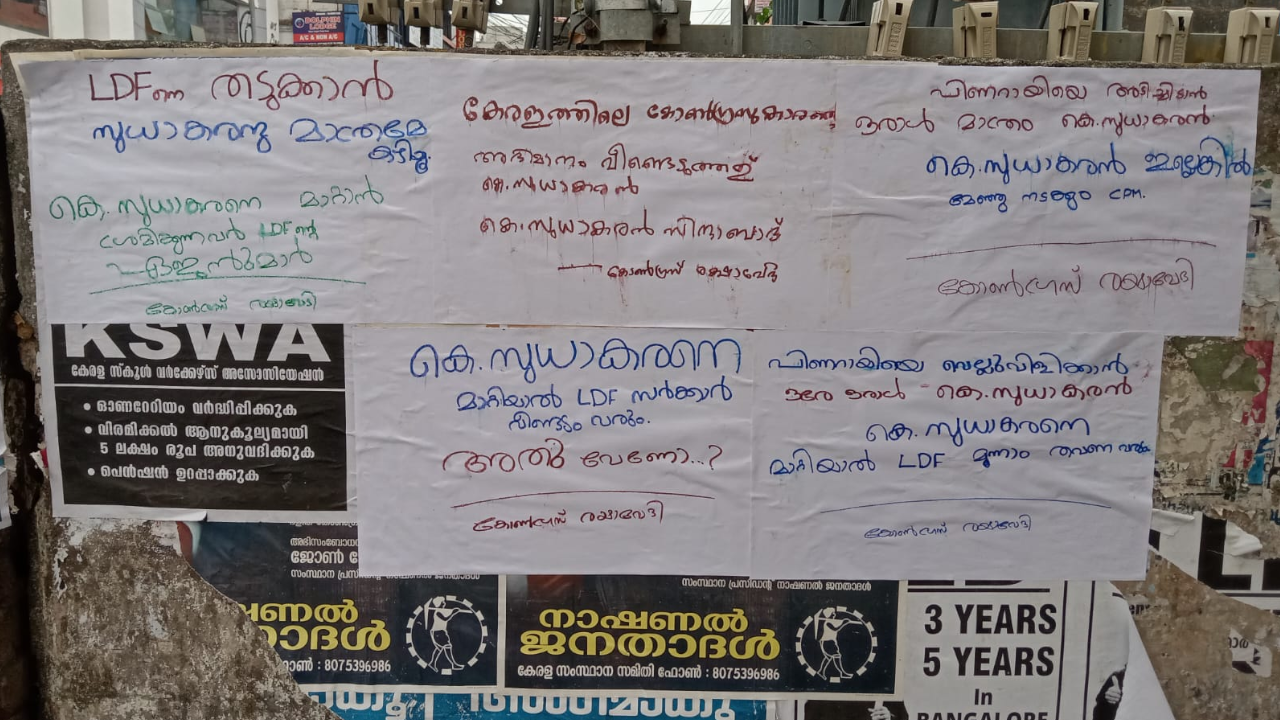 DOLPHIN
LODGE
A/C & NON A/C
LDFനെ തടുക്കാൻ
സുധാകരനു മാത്രമേ
കഴിയൂ.
കെ.സുധാകരനെ മാറ്റാൻ
ശ്രമിക്കുന്നവർ LDFന്റെ
ഏജന്റുമാർ
കോൺഗ്രസ് രക്ഷാവേദി
കേരളത്തിലെ കോൺഗ്രസുകാരന്റെ
അഭിമാനം വീണ്ടെടുത്തത്
കെ.സുധാകരൻ
കെ.സുധാകരൻ സിന്ദാബാദ്
കോൺഗ്രസ് രക്ഷാവേദി
പിണറായിയെ
ഒരാൾ മാത്രം കെ.സുധാകരൻ
കെ.സുധാകരൻ ഇല്ലെങ്കിൽ
മേഞ്ഞു നടക്കും CPM.
കോൺഗ്രസ് രക്ഷാവേദി
KSWA
കേരള സ്കൂൾ വർക്കേഴ്സ് അസോസിയേഷൻ
• ഓണറേറിയം വർദ്ധിപ്പിക്കുക
• വിരമിക്കൽ ആനുകൂല്യമായി
5 ലക്ഷം രൂപ അനുവദിക്കുക
• പെൻഷൻ ഉറപ്പാക്കുക
കെ.സുധാകരനെ
മാറ്റിയാൽ LDF സർക്കാർ
വീണ്ടും വരും.
അതു വേണോ...?
കോൺഗ്രസ് രക്ഷാവേദി
പിണറായിയെ വെല്ലുവിളിക്കാൻ
ഒരേ ഒരാൾ കെ.സുധാകരൻ
കെ.സുധാകരനെ
മാറ്റിയാൽ LDF മൂന്നാം തവണ വരും
കോൺഗ്രസ് രക്ഷാവേദി
ജോൺ
സംസ്ഥാന പ്രസിഡന്റ് നാഷണൽ ജനതാദൾ
ഷണൽ
താദൾ
ഫോൺ : 8075396986
നാഷണൽ
ജനതാദൾ
കേരള സംസ്ഥാന സമിതി ഫോൺ : 8075396986
3 YEARS
5 YEARS
In
BANGALORE